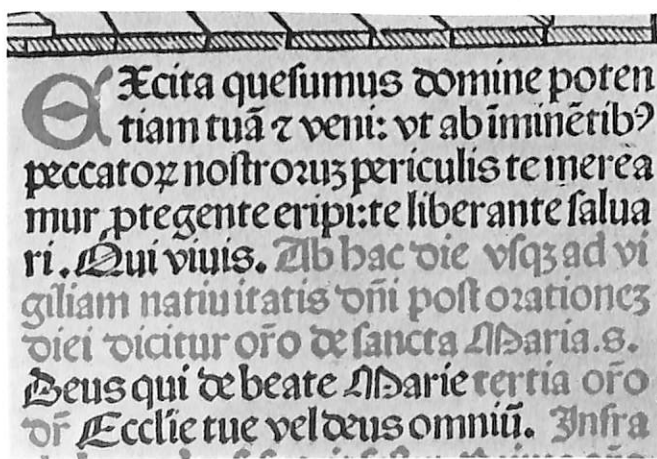 EXcita quesumus domine poten
tiam tuã ⁊ veni: vt ab ĩminẽtibꝰ
peccatoꝝ nostroꝛuʒ periculis te merea
mur ꝓtegente eripi: te liberante salua
ri. Qui viuis. Ab hac die vsqʒ ad vi
giliam natiuitatis dñi post oꝛationeʒ
diei dicitur oro̅ de sancta Maria. s.
Deus qui de beate Marie tertia oro̅
dr̅ Ecclie tue vel deus omniũ. Infra